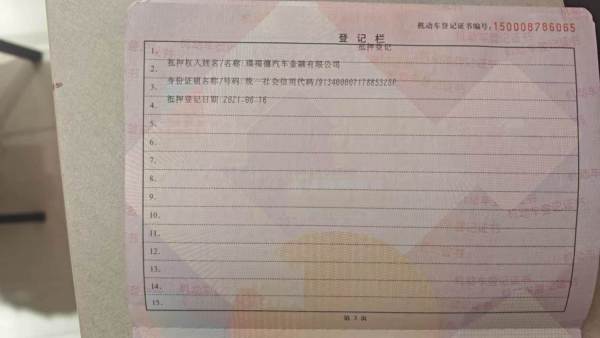 机动车登记证书编号:150008786065
登记栏
1. 抵押登记
2. 抵押权人姓名/名称:瑞福德汽车金融有限公司
3. 身份证明名称/号码:统一社会信用代码/
4. 抵押登记日期:2021-06-16
5.
6.
7.
8.
9.
10.
11.
12.
13.
14.
15.
第 3 页